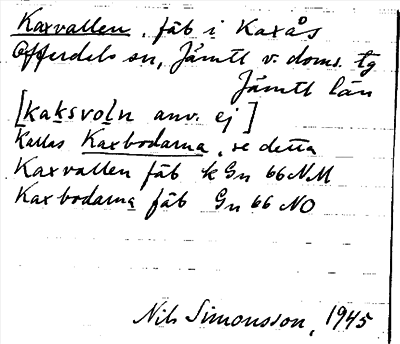 Kaxvallen, fäb i Kaxås
Offerdals sn, Jämtl v. doms. tg
Jämtl län
[kaksvoln anv. ej]
Kallas Kaxbodarna, se detta
Kaxvallen fäb k Gn 66 NM
Kaxbodarna fäb Gn 66 NO
Nils Simonsson, 1945